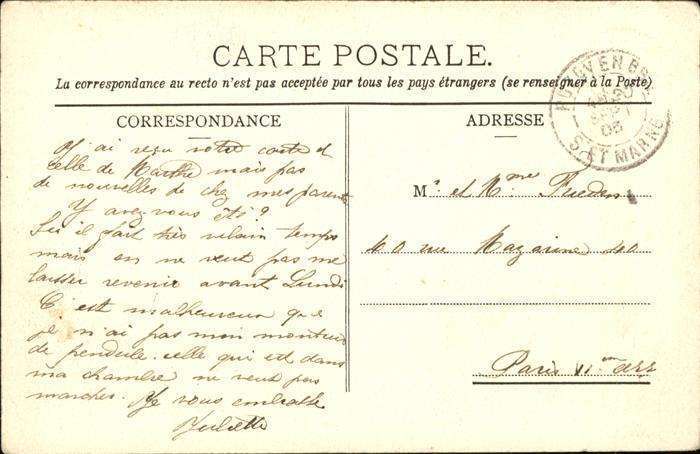 CARTE POSTALE.
La correspondance au recto n'est pas acceptée par tous les pays étrangers (se renseigner à la Poste)
CORRESPONDANCE
J'ai reçu votre carte et
celle de Marthe mais pas
de nouvelles de chez mes parents
Y avez vous été?
Ici il fait très vilain temps
mais on ne veut pas me
laisser revenir avant Lundi
C'est malheureux que
je n'ai pas mon monteur
de pendule. celle qui est dans
ma chambre ne veut pas
marcher. Je vous embrasse
Juliette
ADRESSE
M. et Mme
40 rue Mazarine 40
Paris VI eme arr
S. ET MARNE